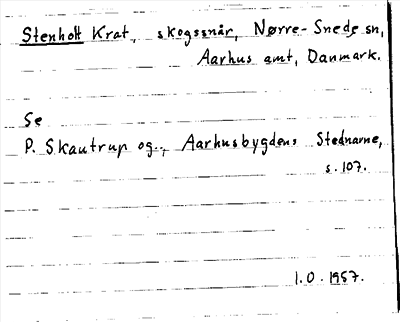 Stenholt Krat, skogssnår, Nørre-Snede sn,
Aarhus amt, Danmark.
Se
P. Skautrup og., Aarhusbygdens Stednavne,
s. 107.
I.O. 1957.